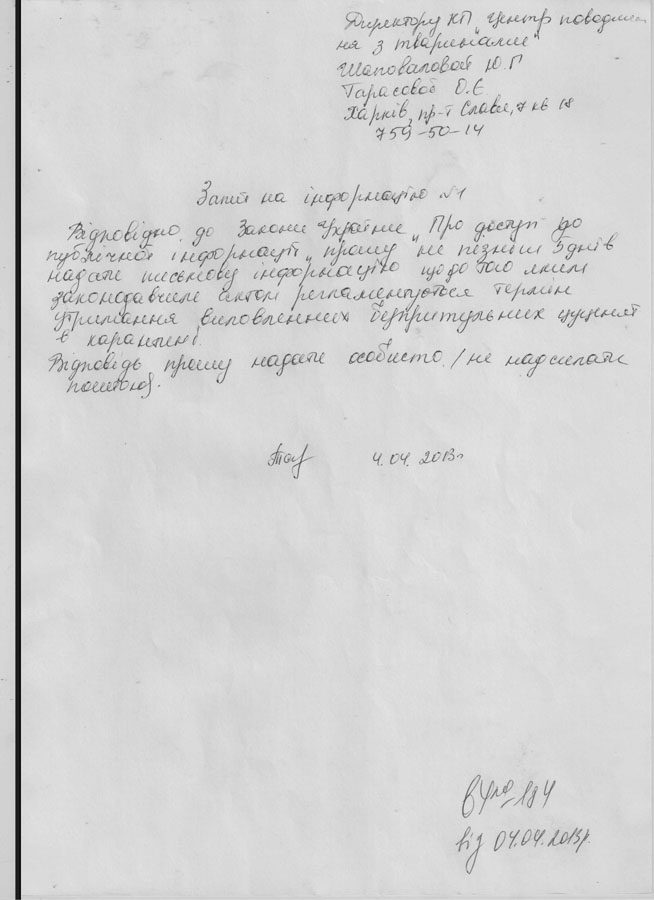 Директору КП „Центр поводжен
ня з тваринами"
Шаповаловой Ю.Г
Тарасовой О.Є
Харків, пр-т Слави, 7 кв 18
759-50-14
Запит на інформацію №1
Відповідно до Закони України „Про доступ до
публічної інформації" прошу не пізніш 5 днів
надати письмову інформацію щодо того яким
законодавчим актом регламентується термін
утримання виловленних безпритульних цуценят
в карантині.
Відповідь прошу надати особисто /не надсилати
поштою/.
4.04.2013г
від 04.04.2013р.